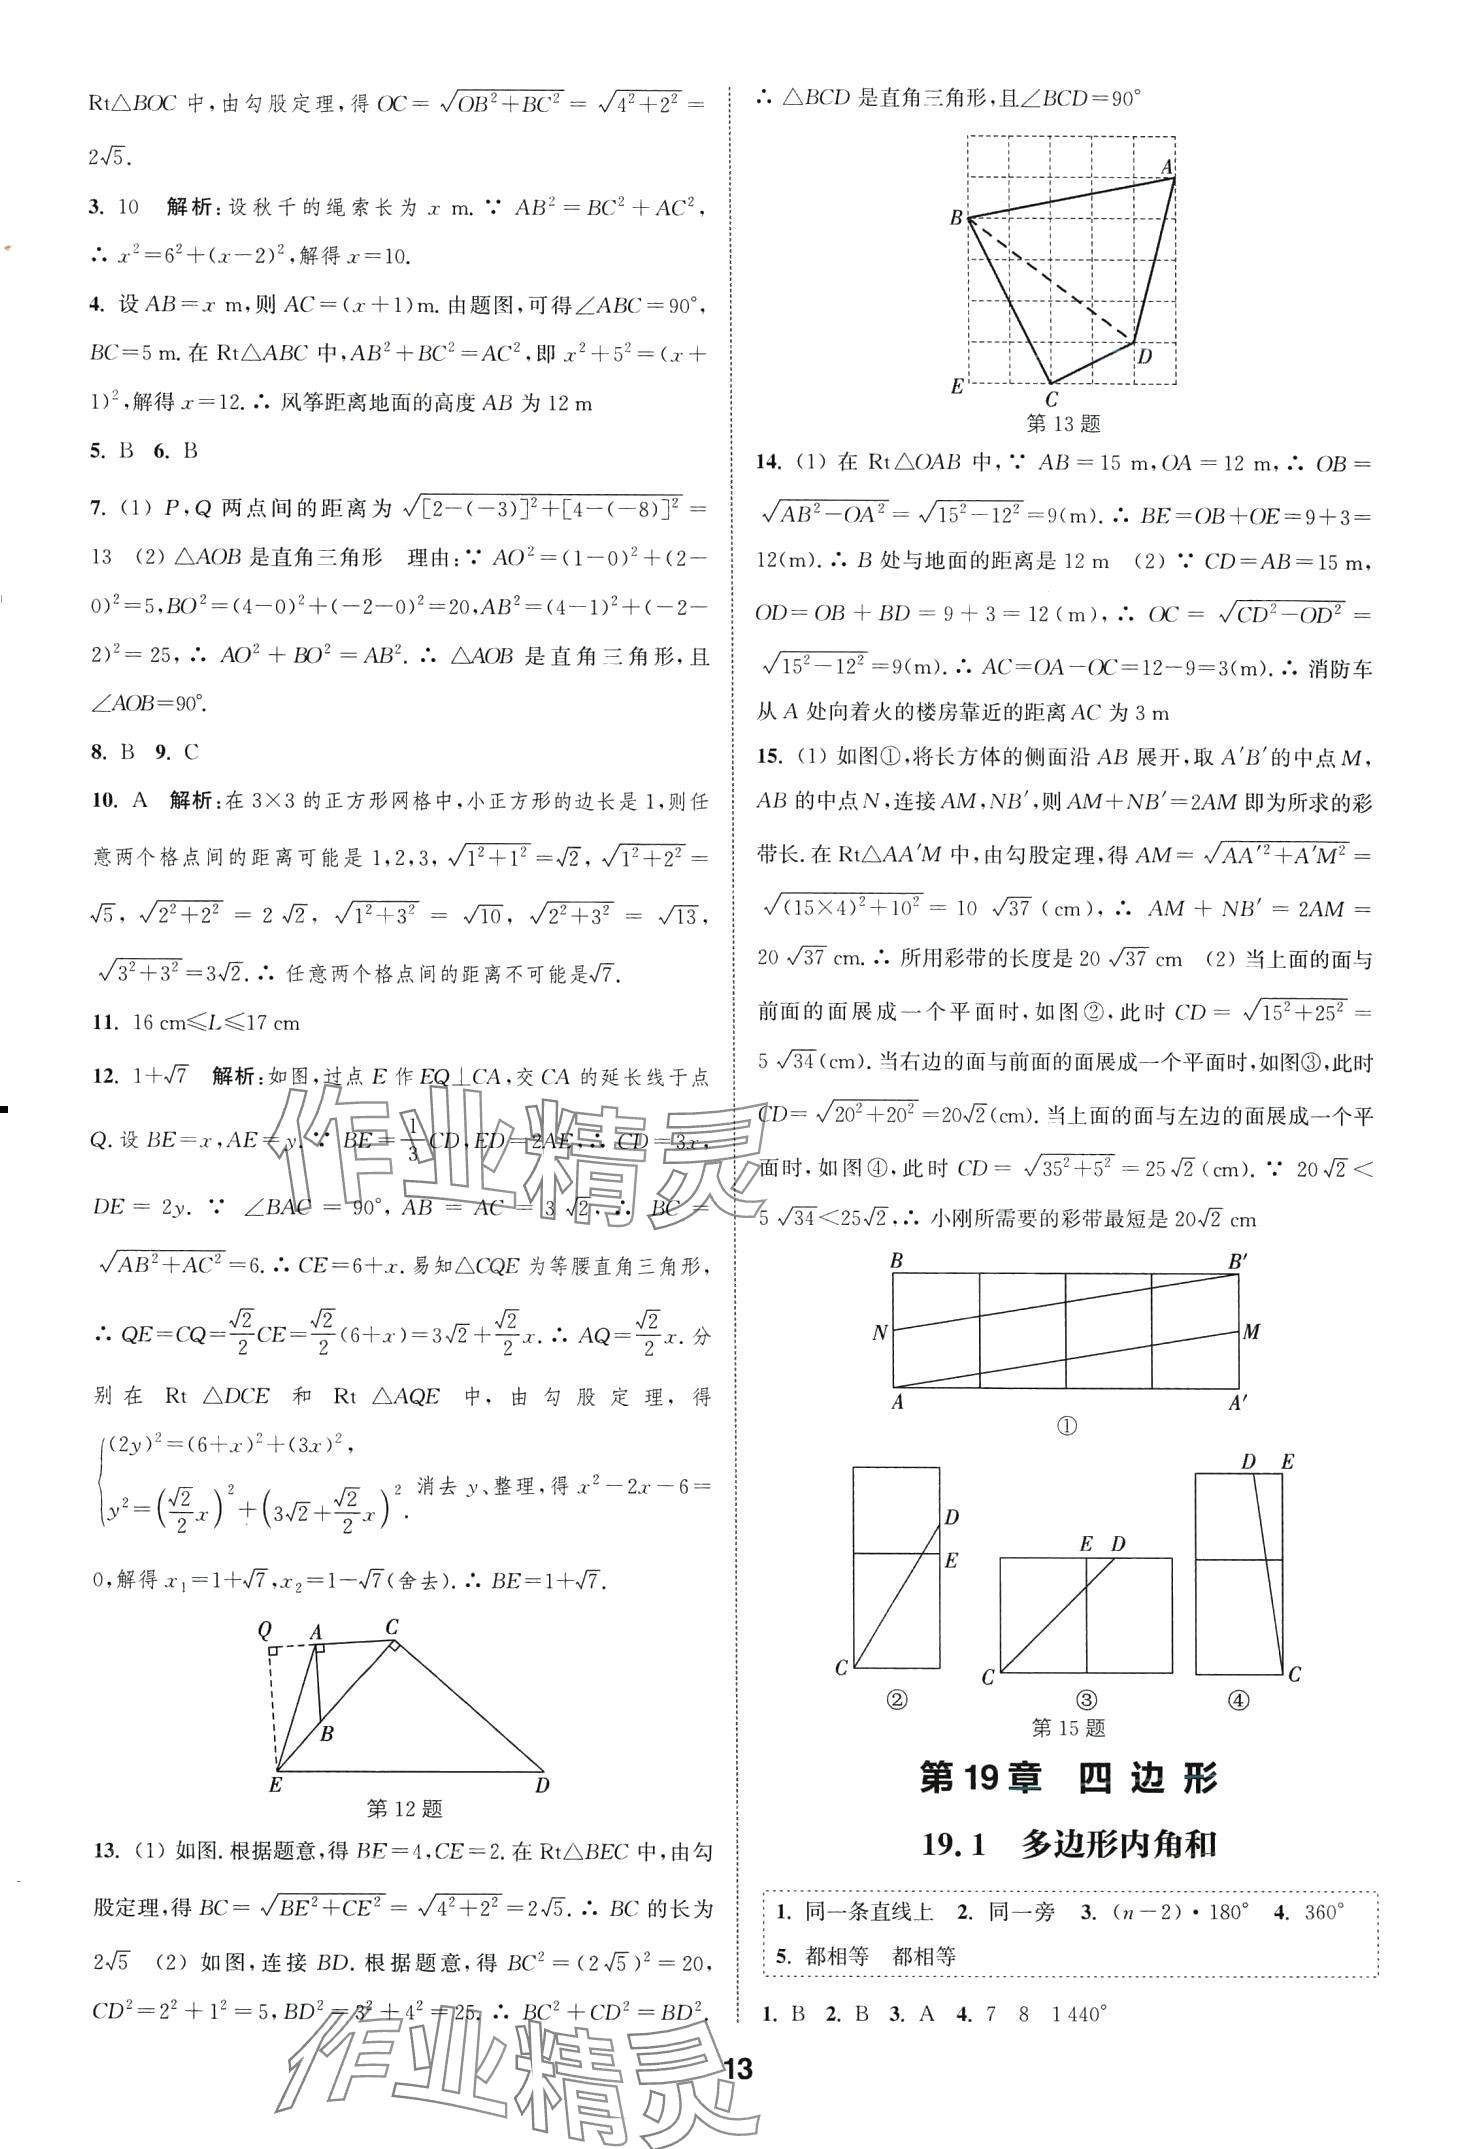 Rt△BOC 中,由勾股定理,得 OC=√(OB²+BC²)=√(4²+2²)=
2√5.
3. 10 解析:设秋千的绳索长为 x m.∵ AB²=BC²+AC²,
∴ x²=6²+(x-2)²,解得 x=10.
4. 设 AB=x m,则 AC=(x+1)m.由题图,可得∠ABC=90°,
BC=5 m.在 Rt△ABC 中,AB²+BC²=AC²,即 x²+5²=(x+
1)²,解得 x=12.∴ 风筝距离地面的高度 AB 为 12 m
5. B 6. B
7. (1) P,Q 两点间的距离为 √([2-(-3)]²+[4-(-8)]²)=
13 (2) △AOB 是直角三角形 理由:∵ AO²=(1-0)²+(2-
0)²=5,BO²=(4-0)²+(-2-0)²=20,AB²=(4-1)²+(-2-
2)²=25,∴ AO²+BO²=AB².∴ △AOB 是直角三角形,且
∠AOB=90°.
8. B 9. C
10. A 解析:在 3×3 的正方形网格中,小正方形的边长是 1,则任
意两个格点间的距离可能是 1,2,3,√(1²+1²)=√2,√(1²+2²)=
√5,√(2²+2²)=2√2,√(1²+3²)=√10,√(2²+3²)=√13,
√(3²+3²)=3√2.∴ 任意两个格点间的距离不可能是√7.
11. 16 cm≤L≤17 cm
12. 1+√7 解析:如图,过点 E 作 EQ⊥CA,交 CA 的延长线于点
Q.设 BE=x,AE=y.∵ BE=1/3CD,ED=2AE,∴ CD=3x,
DE=2y.∵ ∠BAC=90°,AB=AC=3√2,∴ BC=
√(AB²+AC²)=6.∴ CE=6+x.易知△CQE 为等腰直角三角形,
∴ QE=CQ=√2/2CE=√2/2(6+x)=3√2+√2/2x.∴ AQ=√2/2x.分
别在 Rt △DCE 和 Rt △AQE 中,由勾股定理,得
{(2y)²=(6+x)²+(3x)²,
y²=(√2/2x)²+(3√2+√2/2x)². 消去 y、整理,得 x²-2x-6=
0,解得 x₁=1+√7,x₂=1-√7(舍去).∴ BE=1+√7.
Q A C
B
E D
第 12 题
13. (1) 如图.根据题意,得 BE=4,CE=2.在 Rt△BEC 中,由勾
股定理,得 BC=√(BE²+CE²)=√(4²+2²)=2√5.∴ BC 的长为
2√5 (2) 如图,连接 BD.根据题意,得 BC²=(2√5)²=20,
CD²=2²+1²=5,BD²=3²+4²=25.∴ BC²+CD²=BD².
∴ △BCD 是直角三角形,且∠BCD=90°
A
B
D
E
C
第 13 题
14. (1) 在 Rt△OAB 中,∵ AB=15 m,OA=12 m,∴ OB=
√(AB²-OA²)=√(15²-12²)=9(m).∴ BE=OB+OE=9+3=
12(m).∴ B 处与地面的距离是 12 m (2) ∵ CD=AB=15 m,
OD=OB+BD=9+3=12(m),∴ OC=√(CD²-OD²)=
√(15²-12²)=9(m).∴ AC=OA-OC=12-9=3(m).∴ 消防车
从 A 处向着火的楼房靠近的距离 AC 为 3 m
15. (1) 如图①,将长方体的侧面沿 AB 展开,取 A′B′的中点 M,
AB 的中点 N,连接 AM,NB′,则 AM+NB′=2AM 即为所求的彩
带长.在 Rt△AA′M 中,由勾股定理,得 AM=√(AA′²+A′M²)=
√((15×4)²+10²)=10√37(cm),∴ AM+NB′=2AM=
20√37 cm.∴ 所用彩带的长度是 20√37 cm (2) 当上面的面与
前面的面展成一个平面时,如图②,此时 CD=√(15²+25²)=
5√34(cm).当右边的面与前面的面展成一个平面时,如图③,此时
CD=√(20²+20²)=20√2(cm).当上面的面与左边的面展成一个平
面时,如图④,此时 CD=√(35²+5²)=25√2(cm).∵ 20√2<
5√34<25√2,∴ 小刚所需要的彩带最短是 20√2 cm
B B′
N M
A A′
①
D E
D
E
E D
C C C
② ③ ④
第 15 题
第 19 章 四边形
19.1 多边形内角和
1. 同一条直线上 2. 同一旁 3. (n-2)·180° 4. 360°
5. 都相等 都相等
1. B 2. B 3. A 4. 7 8 1 440°
13
作业精灵
作业精灵